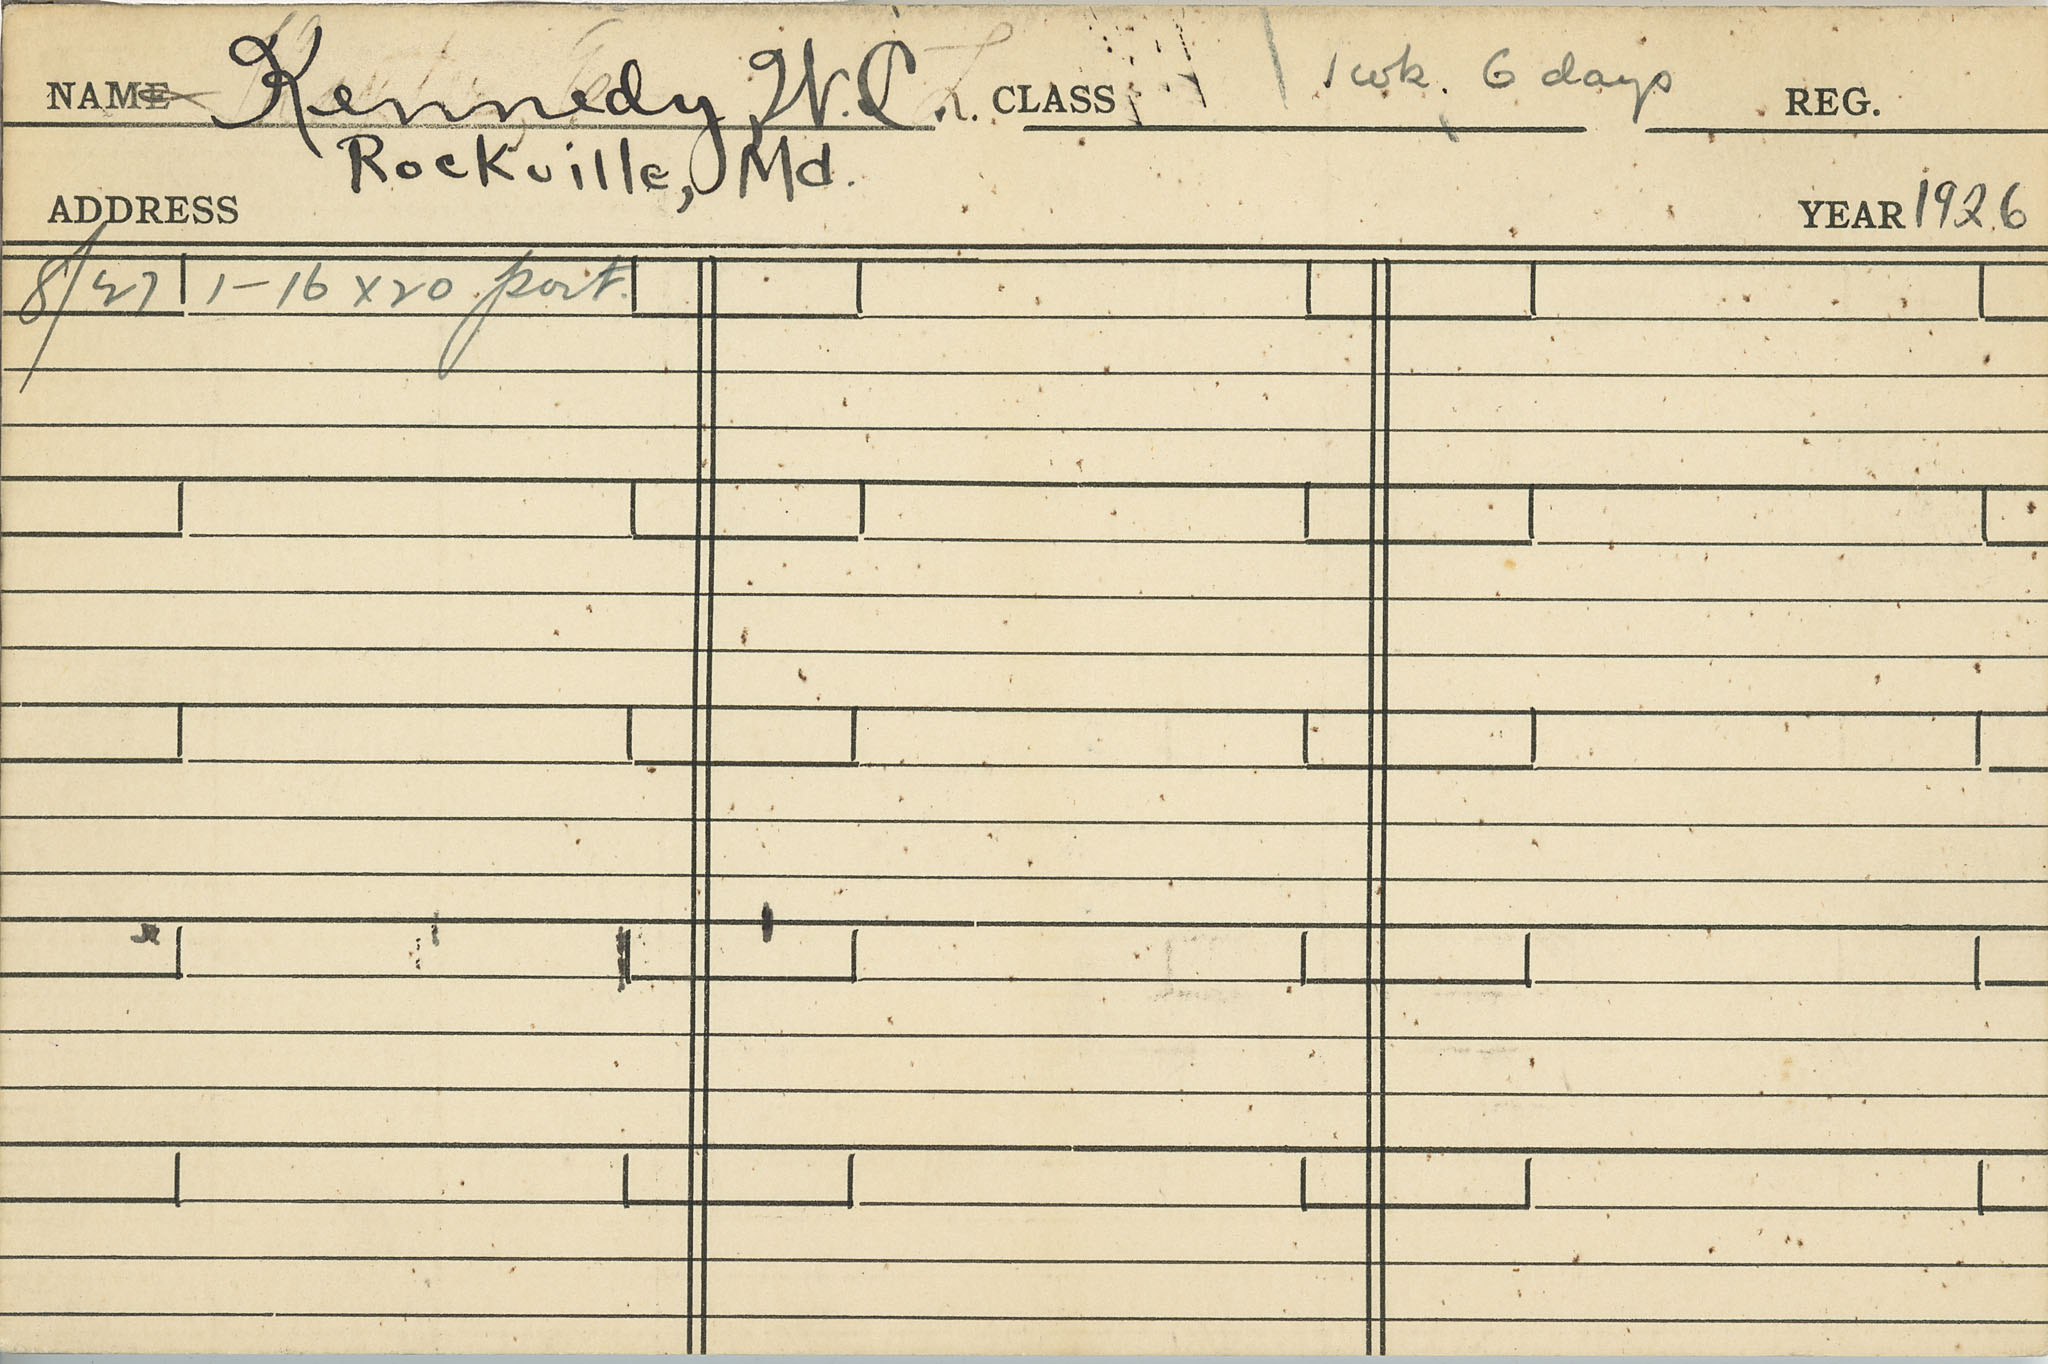 NAME Kennedy, W.C. CLASS 1 wk. 6 days REG.
Rockville, Md.
ADDRESS YEAR 1926
8/27 1-16 x 20 port.